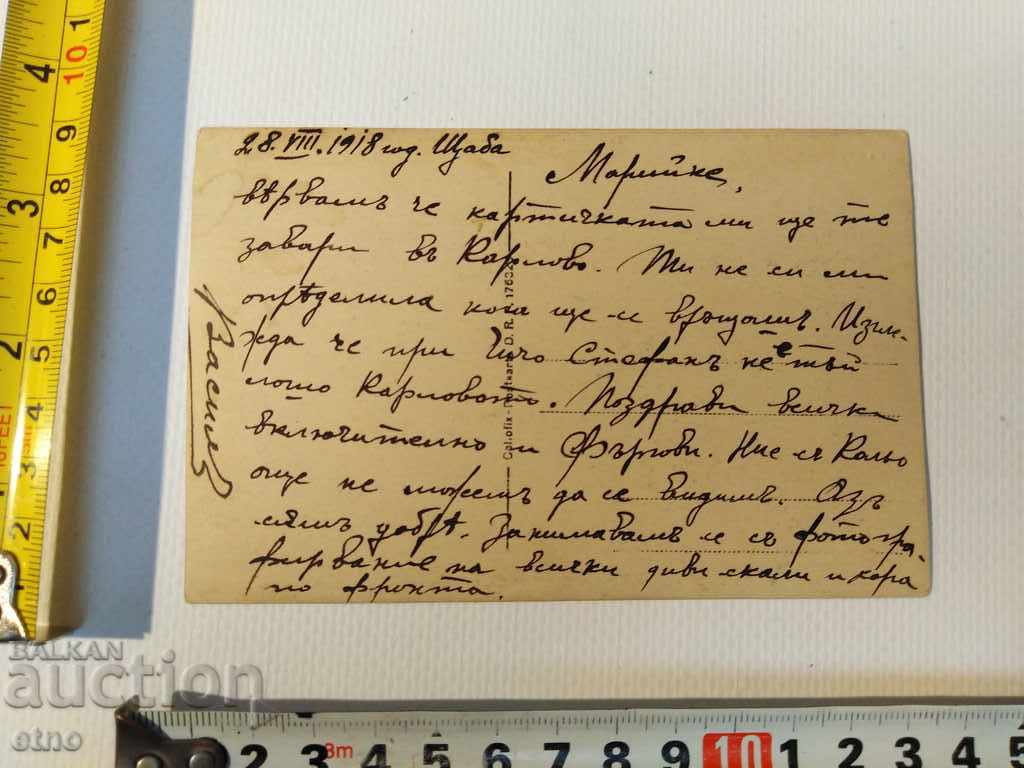 28.VIII.1918 год. Щаба
Марийке,
вѣрвамъ че картичката ми ще те
завари въ Карлово. Ти не си ми
опрѣделила кога ще се връщашъ. Изгле-
жда че при Чичо Стефанъ не е тъй
лошо Карловото. Поздрави всички
включително и Фъргови. Ние съ Кальо
още не можемъ да се видимъ. Азъ
съмъ добрѣ. Занимавамъ се съ фотогра-
фирване на всички диви скали и хора
по фронта.
Василъ
Coliofix - Postkarte D. R. 17632
BALKAN
auction
etno
4
3
2
1
10
9
8
7
6
5
4
3
2
10FEET
2 3 3m 4 5 6 7 8 9 10 1 2 3 4 5